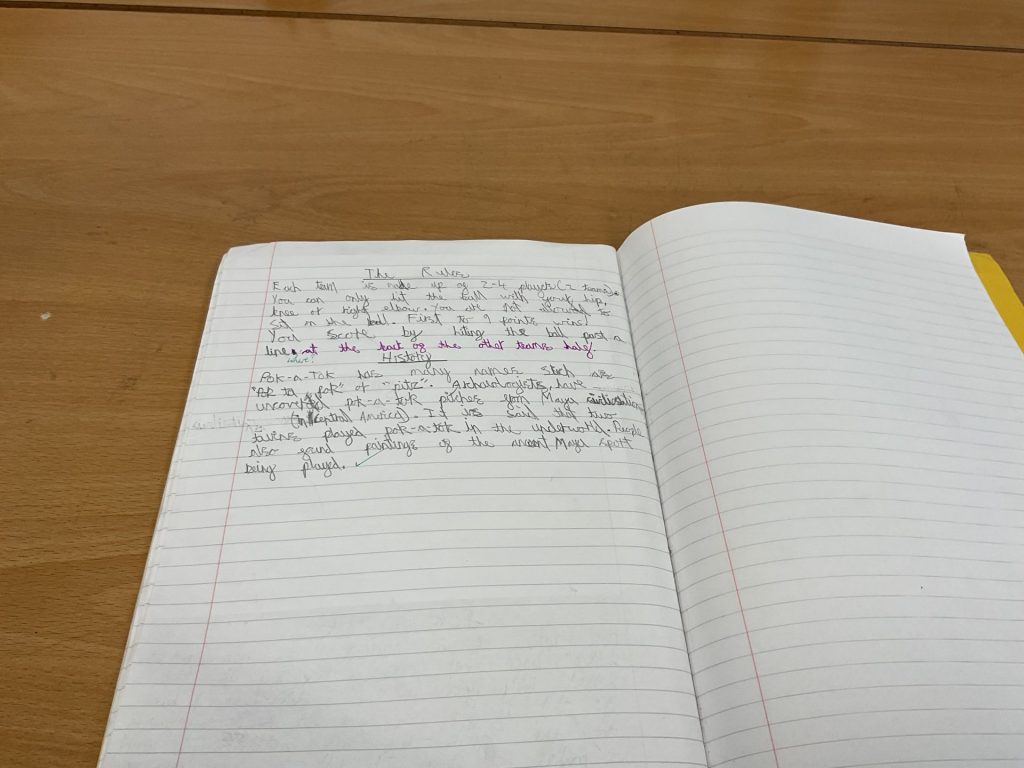 The Rules
Each team is made up of 2-4 players (2 teams).
You can only hit the ball with your hip,
knee or right elbow. You are not allowed to
sit on the ball. First to 9 points wins!
You score by hitting the ball past a
line at the back of the other teams half!
History
Pok-a-Tok has many names such as
"Pok ta pok" or "pitz". Archaeologists have
uncovered pok-a-tok pitches from Maya civilisation
(in Central America). It is said that two
twins played pok-a-tok in the underworld. People
also found paintings of the ancent Maya sport
being played.